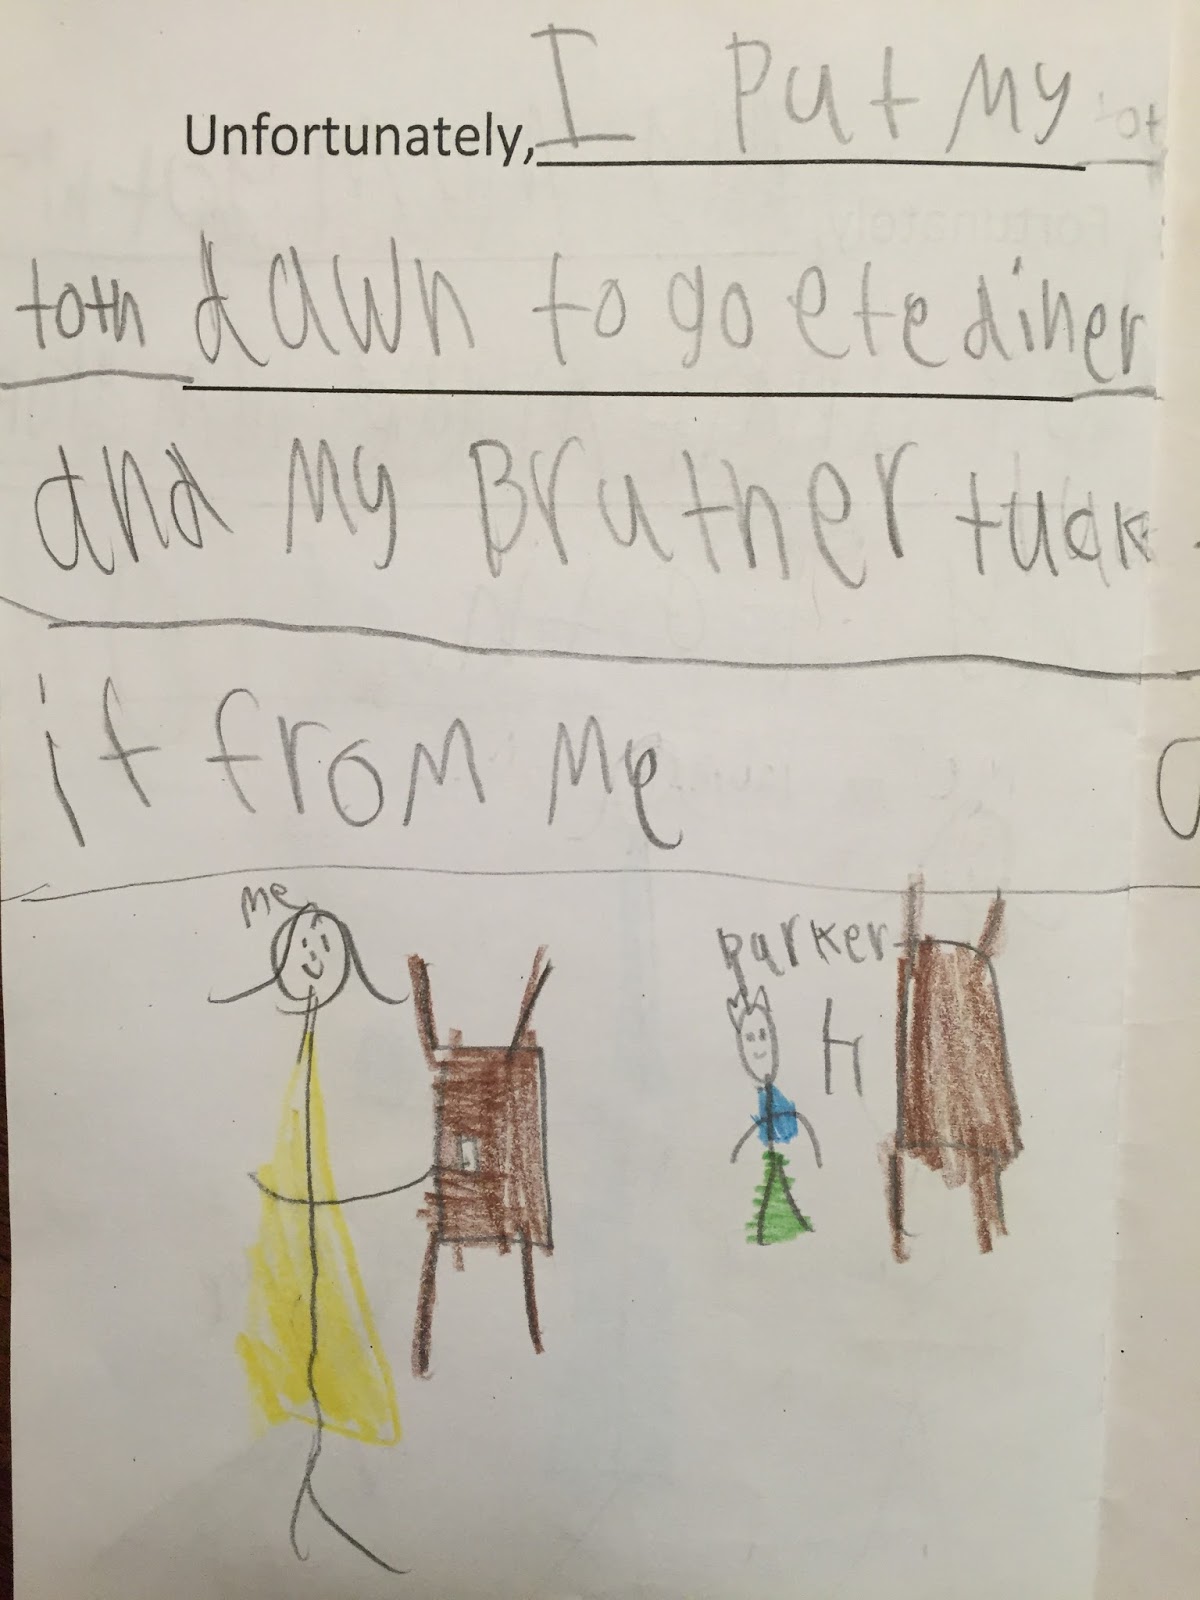 Unfortunately, I put my tot
toth dawn to go ete diner
and my Bruther tuck
it from me
me
parker